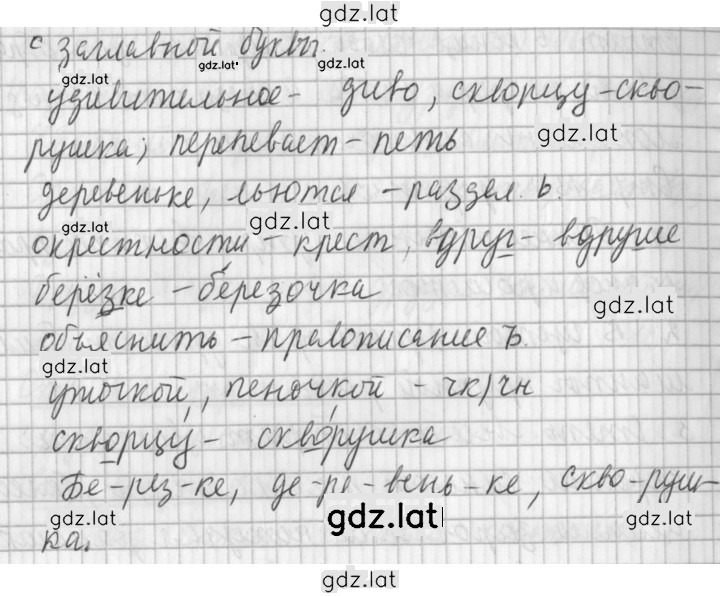 gdz.lat
с заглавной буквы.
gdz.lat gdz.lat
удивительное - диво, скворцу - скво-
рушка; перепевает - петь
gdz.lat
деревеньке, льются - раздел. ь.
gdz.lat gdz.lat
окрестности - крест, вдруг - вдруше
берёзке - берёзочка
gdz.lat
объяснить - правописание ъ.
gdz.lat
уточкой, пеночкой - чк/чн
скворцу - скворушка
Бе-рёз-ке, де-ре-вень-ке, скво-руш-
gdz.lat gdz.lat gdz.lat
ка.
gdz.lat